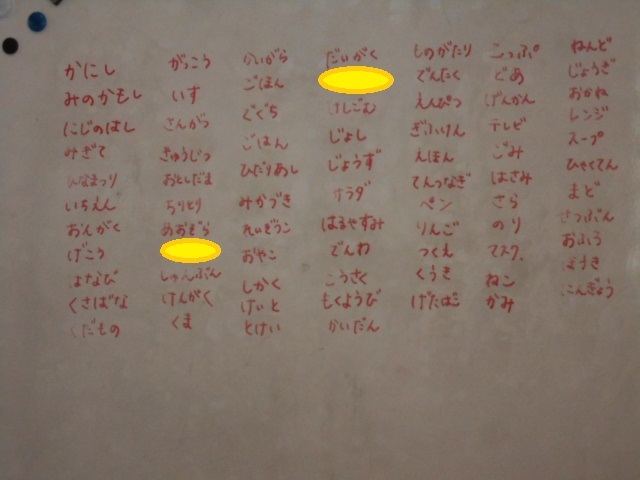 かにし
みのかもし
にじのはし
みぎて
ひなまつり
いちえん
おんがく
げこう
はなび
くさばな
くだもの
がっこう
いす
さんがつ
きゅうじつ
おとしだま
ちりとり
あおぞら
しゅんぶん
けんがく
くま
かいがら
ごほん
くぐち
ごはん
ひだりあし
みかづき
れいぞうこ
おやこ
しかく
けいと
とけい
だいがく
けしごむ
じょし
じょうず
サラダ
はるやすみ
でんわ
こうさく
もくようび
かいだん
ものがたり
でんたく
えんぴつ
ぎふけん
えほん
てんつなぎ
ペン
りんご
つくえ
くうき
げたばこ
こっぷ
どあ
げんかん
テレビ
ごみ
はさみ
さら
のり
マスク
ねこ
かみ
ねんど
じょうぎ
おかね
レンジ
スープ
ひゃくてん
まど
せつぶん
おふろ
ほうき
にんぎょう